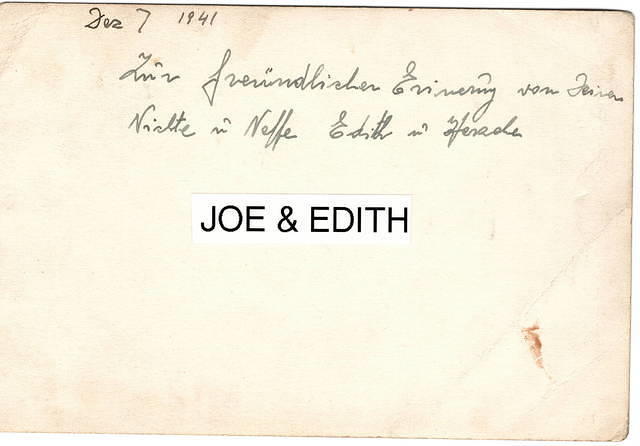 Dez 7 1941
Zur freundlichen Erinerung von Deinen
Nichte u Neffe Edith u
JOE & EDITH